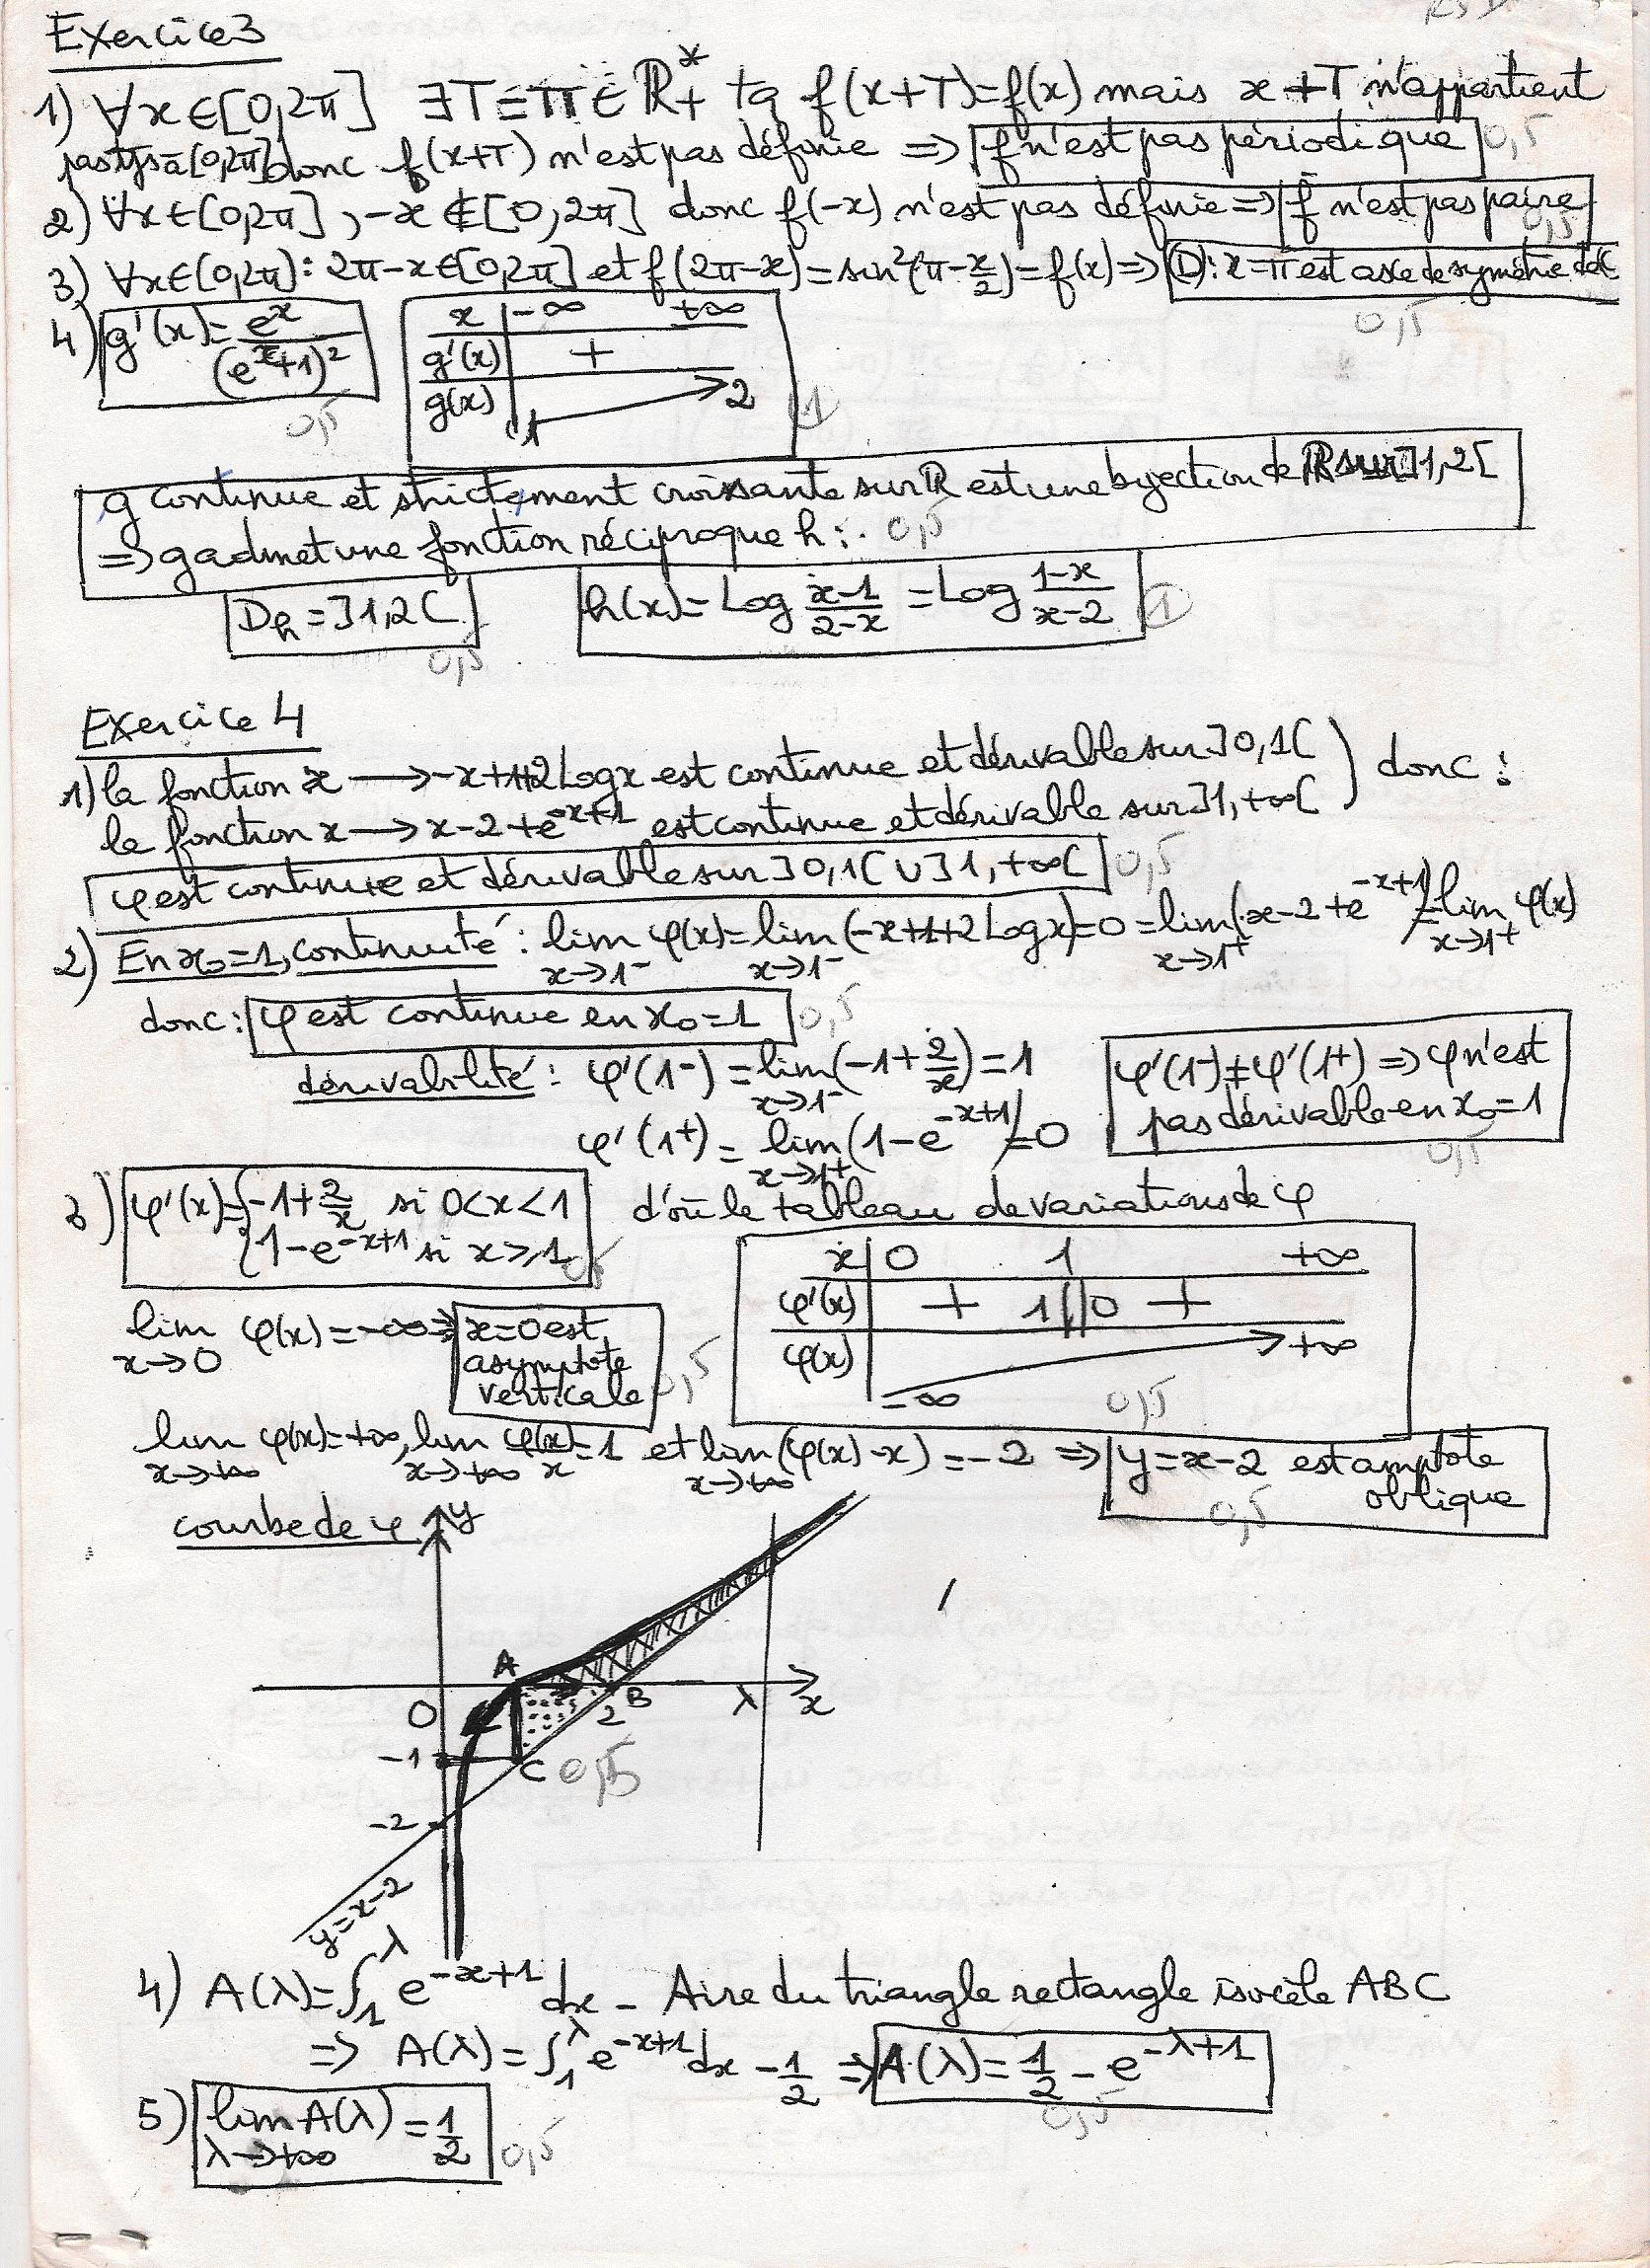 Exercice 3
1) ∀x∈[0,2π] ∃T=π∈ℝ*+ tq f(x+T)=f(x) mais x+T n'appartient
pas tjs à [0,2π] donc f(x+T) n'est pas définie ⇒ f n'est pas périodique 0,5
2) ∀x∈[0,2π], -x∉[0,2π] donc f(-x) n'est pas définie ⇒ f n'est pas paire 0,5
3) ∀x∈[0,2π]: 2π-x∈[0,2π] et f(2π-x)=sin²(π-x/2)=f(x) ⇒ (D): x=π est axe de symétrie de C
0,5
4) g'(x)= e^x/(e^x+1)² 0,5
x -∞ +∞
g'(x) +
g(x) 1 2 1
g continue et strictement croissante sur ℝ est une bijection de ℝ sur ]1,2[
⇒ g admet une fonction réciproque h: 0,5
Dh = ]1,2[ h(x)= Log (x-1)/(2-x) = Log (1-x)/(x-2) 1
0,5
Exercice 4
1) la fonction x → -x+1+2Logx est continue et dérivable sur ]0,1[ ) donc :
la fonction x → x-2+e^(-x+1) est continue et dérivable sur ]1,+∞[
φ est continue et dérivable sur ]0,1[ ∪ ]1,+∞[ 0,5
2) En x₀=1, continuité : lim x→1⁻ φ(x)= lim x→1⁻ (-x+1+2Logx)=0= lim x→1⁺ (x-2+e^(-x+1))= lim x→1⁺ φ(x)
donc: φ est continue en x₀=1 0,5
dérivabilité : φ'(1⁻) = lim x→1⁻ (-1+2/x)=1
φ'(1⁺) = lim x→1⁺ (1-e^(-x+1))=0
φ'(1⁻)≠φ'(1⁺) ⇒ φ n'est
pas dérivable en x₀=1
0,5
3) φ'(x)={ -1+2/x si 0<x<1
1-e^(-x+1) si x⩾1 0,5
d'où le tableau de variations de φ
x 0 1 +∞
φ'(x) + 1||0 +
φ(x) -∞ +∞
0,5
lim x→0 φ(x)=-∞ ⇒ x=0 est
asymptote
verticale 0,5
lim x→+∞ φ(x)=+∞, lim x→+∞ φ(x)/x=1 et lim x→+∞ (φ(x)-x)=-2 ⇒ y=x-2 est asmptote
oblique
0,5
courbe de φ y
A
O 2 B λ x
-1 C 0,5
-2
y=x-2
4) A(λ)=∫₁^λ e^(-x+1) dx - Aire du triangle rectangle isocèle ABC
⇒ A(λ)=∫₁^λ e^(-x+1) dx - 1/2 ⇒ A(λ)=1/2-e^(-λ+1)
0,5
5) lim λ→+∞ A(λ)=1/2 0,5